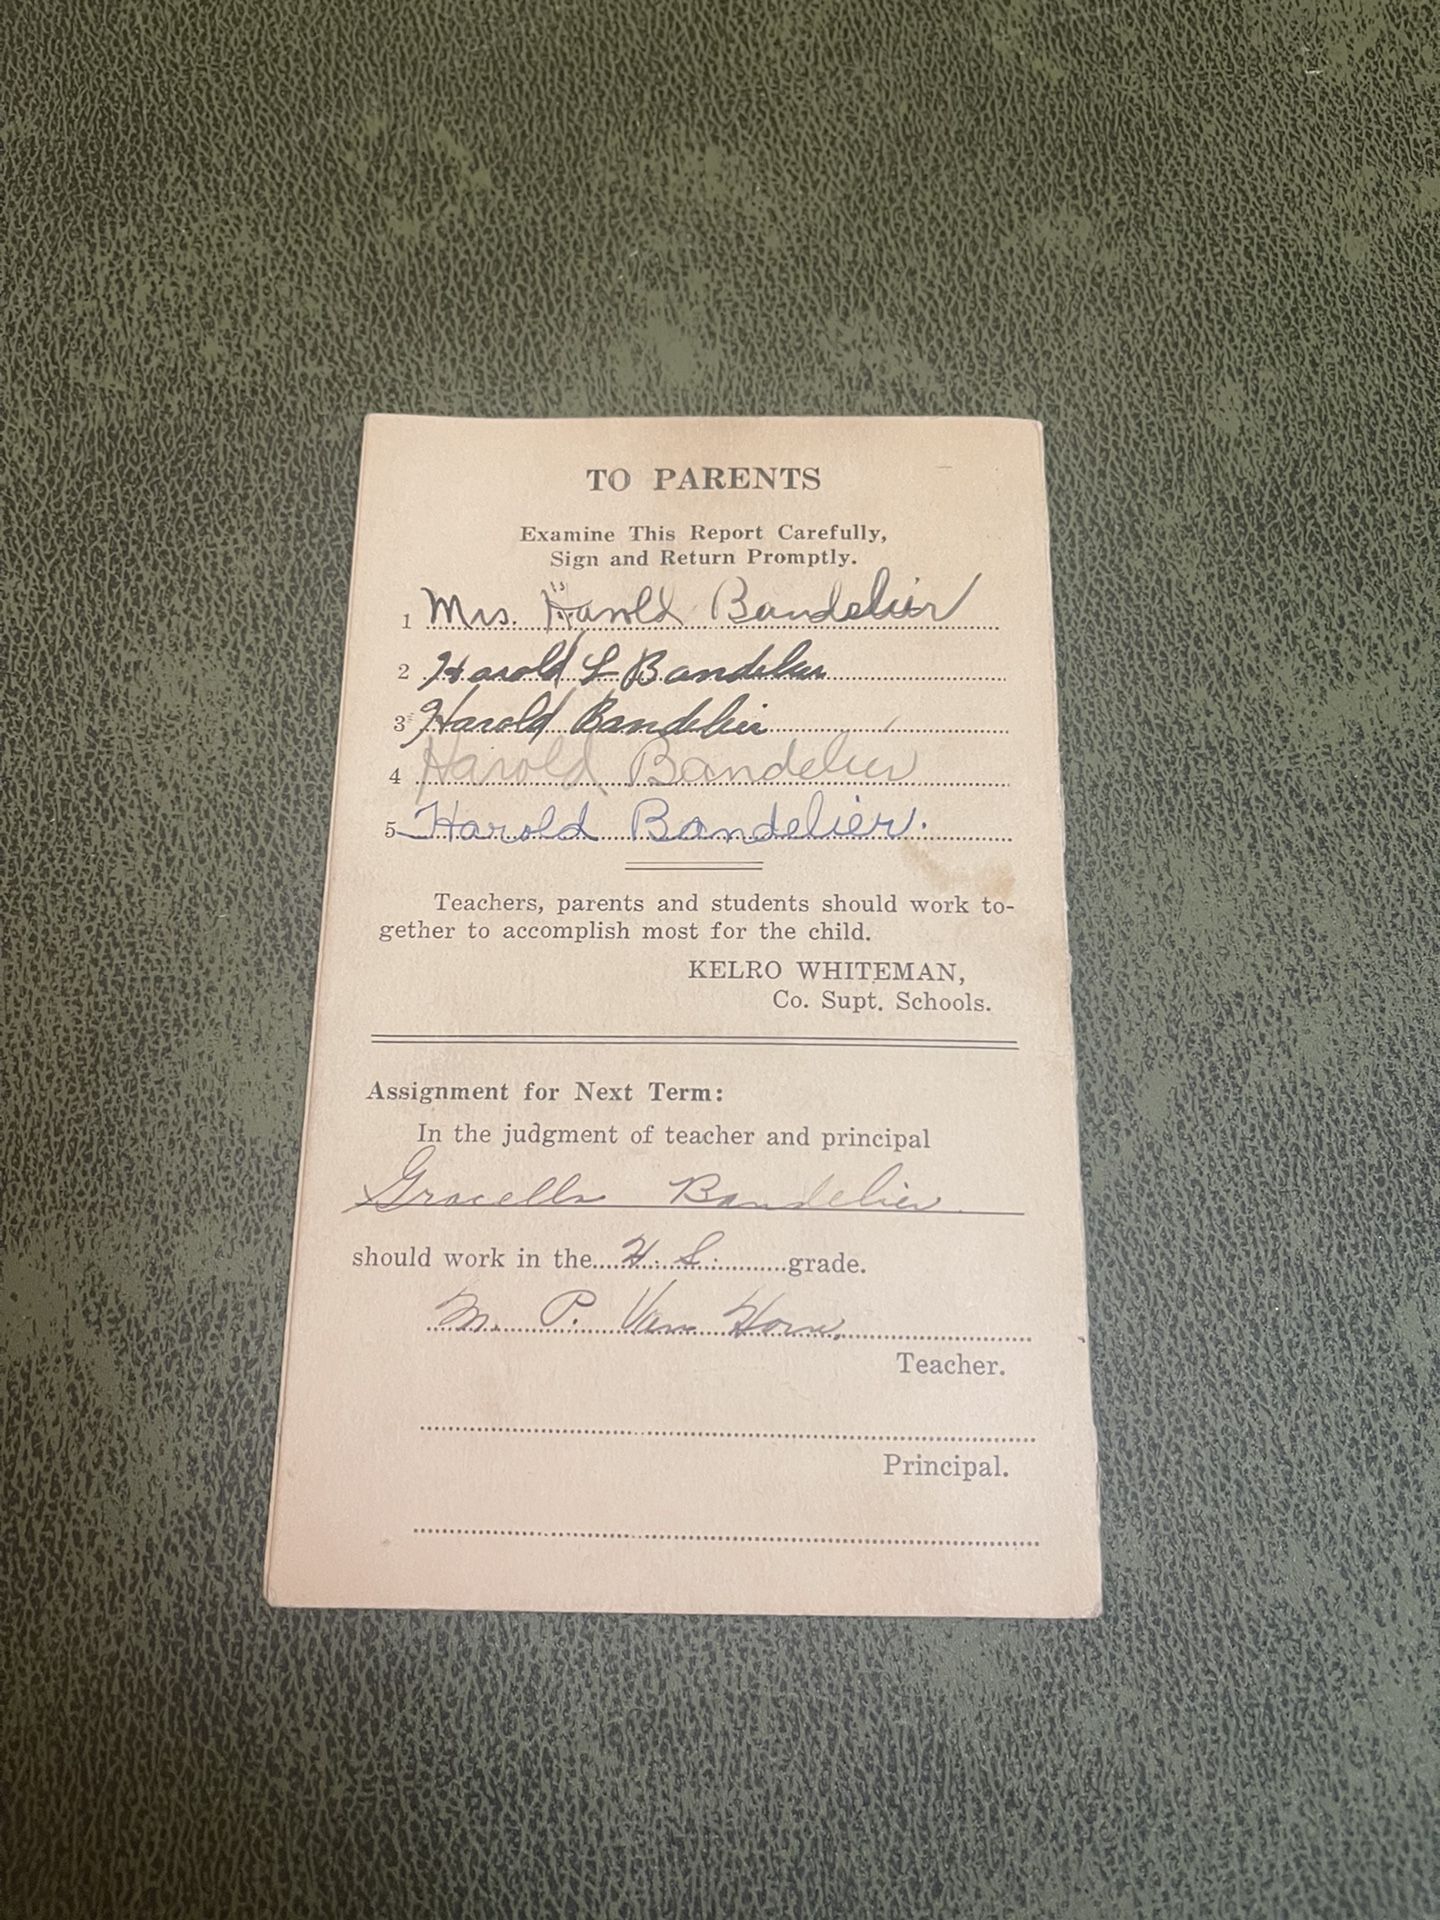 TO PARENTS
Examine This Report Carefully,
Sign and Return Promptly.
1 Mrs. Harold Bandelier
2 Harold L Bandelier
3 Harold Bandelier
4 Harold Bandelier
5 Harold Bandelier.
Teachers, parents and students should work to-
gether to accomplish most for the child.
KELRO WHITEMAN,
Co. Supt. Schools.
Assignment for Next Term:
In the judgment of teacher and principal
Gracella Bandelier
should work in the H. S. grade.
M. P. Van Horn,
Teacher.
Principal.